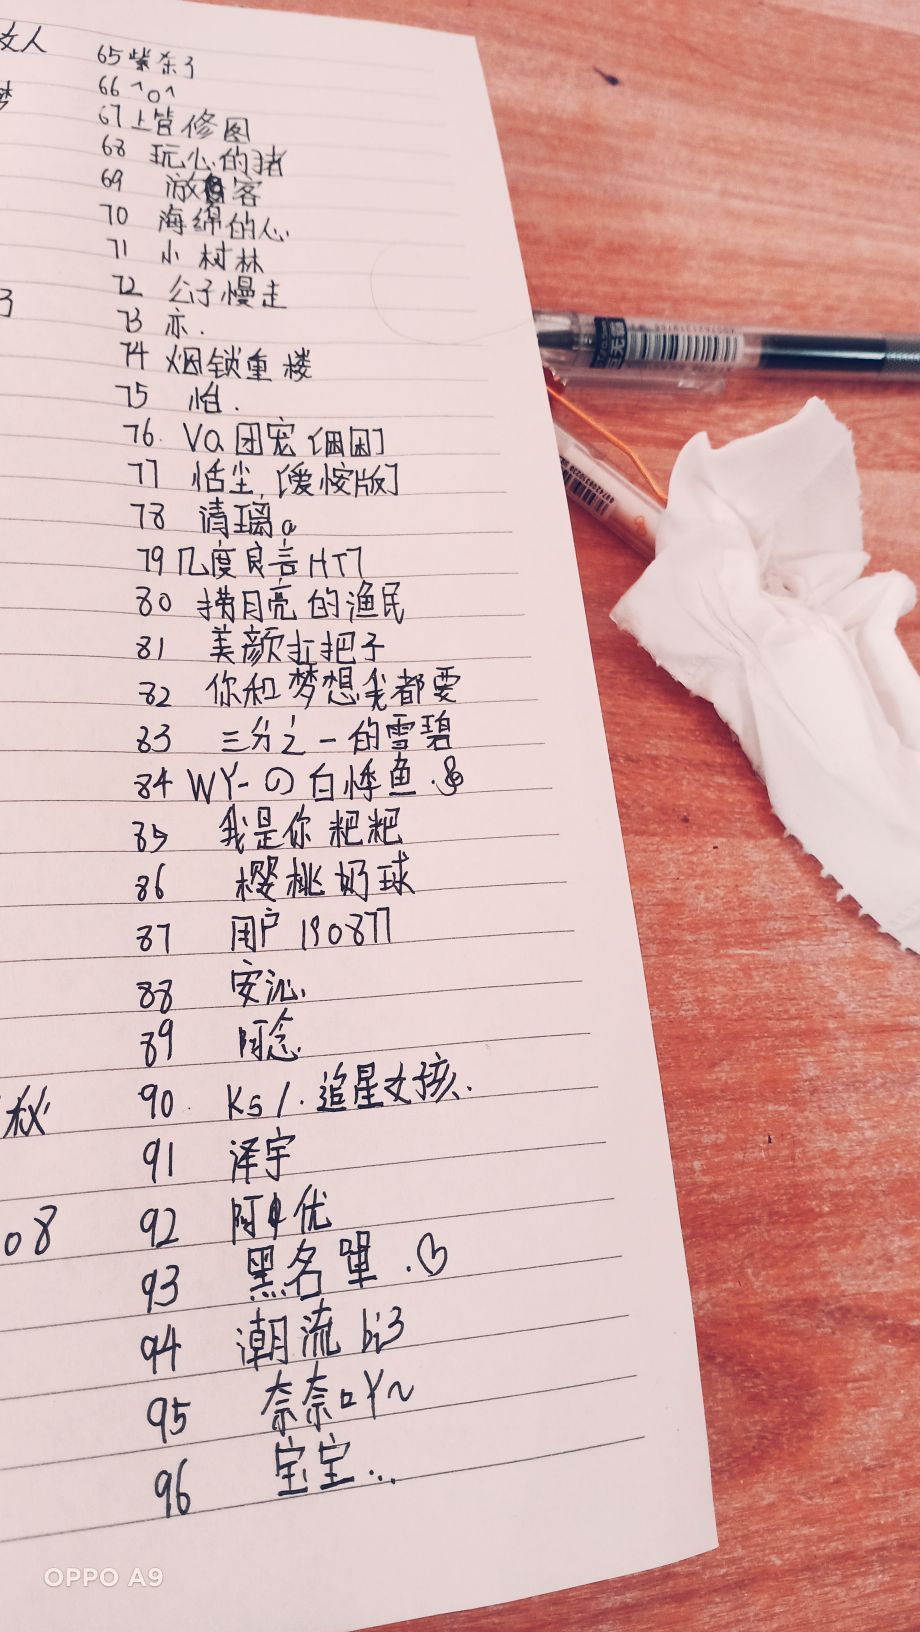 女人
梦
了
秘
08
65 紫杀了
66 ^o^
67 上官修图
68 玩心的猪
69 放客
70 海绵的心.
71 小树林
72 公子慢走
73 亦.
74 烟锁重楼
75 怡.
76. Va团宠
77 恬尘.
78 清璃a
79 几度良言HT7
80 捞月亮的渔民
81 美颜扛把子
82 你和梦想我都要
83 三分之一的雪碧
84 WY-の白悸鱼.
85 我是你粑粑
86 樱桃奶球
87 用户190877
88 安沁.
89 阿念.
90. Ks/.追星女孩.
91 泽宇
92 阿优
93 黑名單.♡
94 潮流bi3
95 奈奈吖~
96 宝宝...
OPPO A9